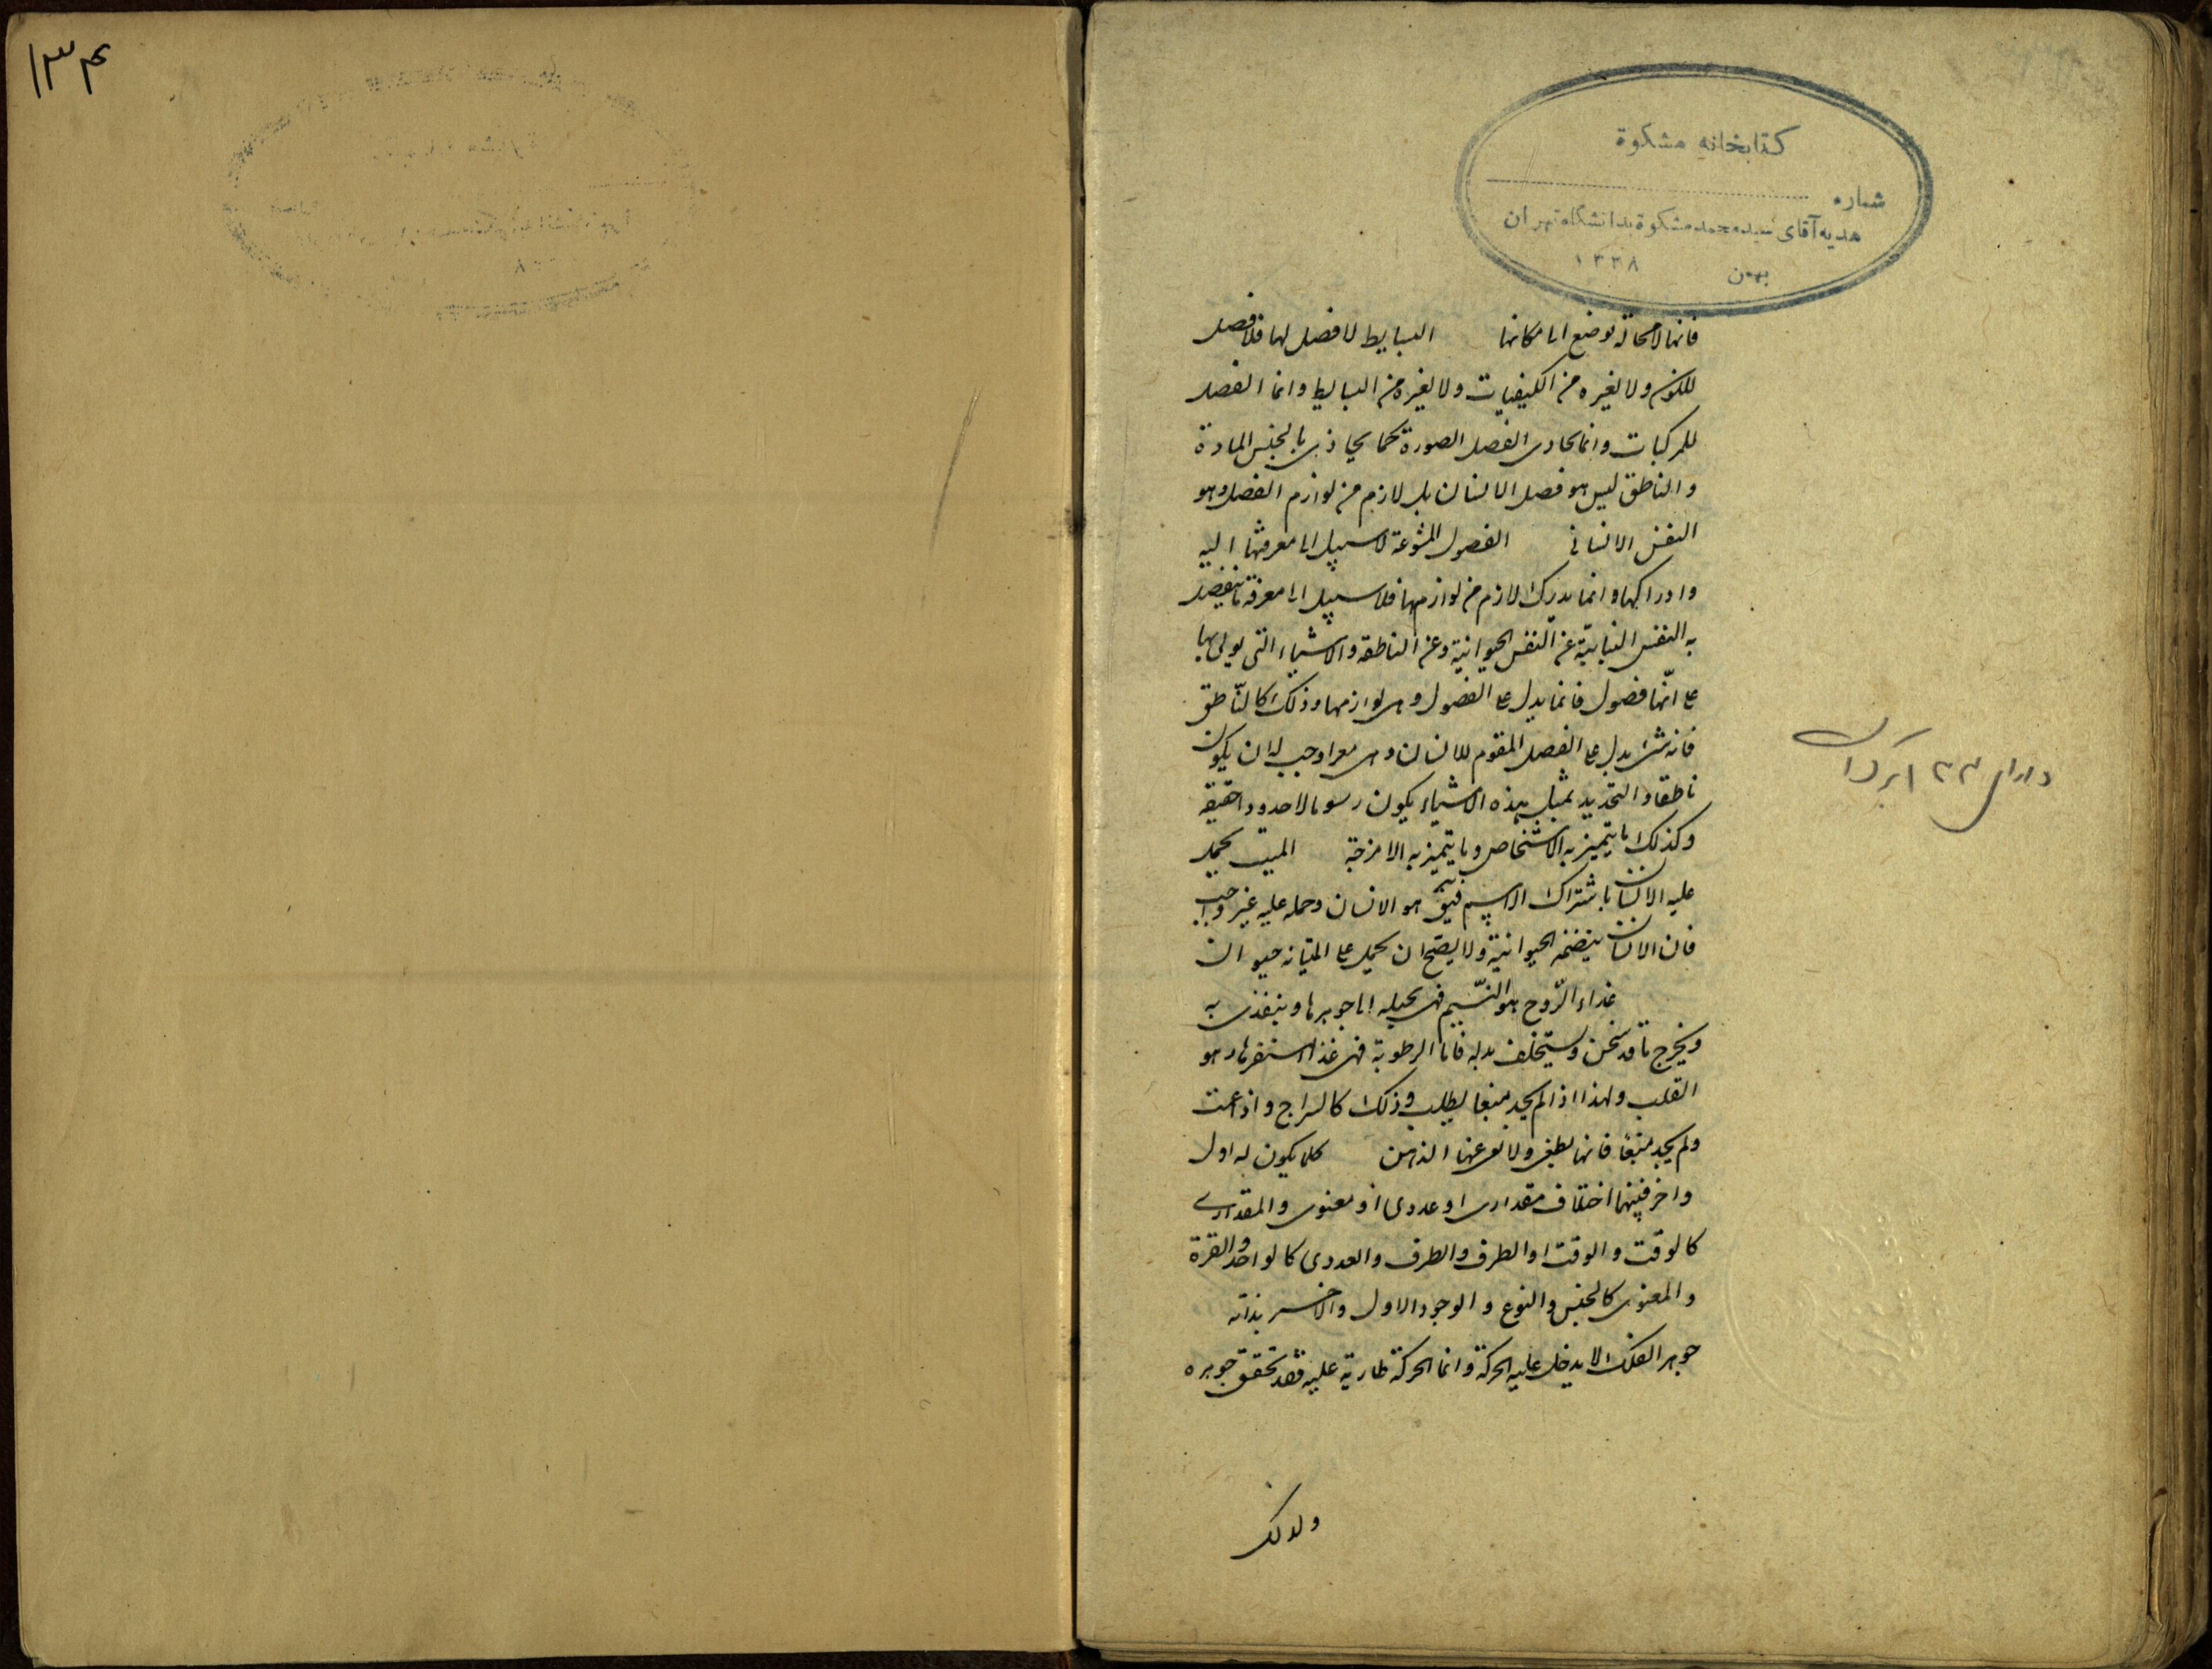 ۱۳۴
کتابخانه مشکوة
شماره
هدیه آقای سید محمد مشکوة بدانشگاه تهران
بهمن ۱۳۳۸
فانها لا محالة توضع الى امكانها البسايط لا فصل لها فلا فصل
للكون ولا لغيره من الكيفيات ولا لغيره من البسايط وانما الفصل
للمركبات وانما يحاذى الفصل الصورة كما يحاذى بالجنس المادة
والناطق ليس هو فصل الانسان بل لازم من لوازم الفصل وهو
النفس الانسانى الفصول المنوعة لا سبيل الى معرفتها البتة
وادراكها وانما يدرك لازم من لوازمها فلا سبيل الى معرفة ما ينفصل
به النفس النباتية عن النفس الحيوانية وعن الناطقة والاشياء التى يوتى بها
على انّها فصول فانما يدل على الفصول وهى لوازمها وذلك كالنّاطق
فانه شئ يدل على الفصل المقوم للانسان وهى معنى اوجب له ان يكون
ناطقا والتحديد بمثل هذه الاشياء يكون رسوما لا حدودا حقيقة
وكذلك ما يتميز به الاشخاص وما يتميز به الامزجة الميت يحمل
عليه الانسان باشتراك الاسم فيق هو الانسان وحمله عليه غير واجب
فان الانسان يتضمن الحيوانية ولا يصح ان يحمل على الميت انه حيوان
غذاء الرّوح هو النّسيم فهى يحيله الى جوهرها ويتغذى به
ويخرج ما قد سخن ويستخلف بدله فاما الرطوبة فهى غذا مستقرها وهو
القلب ولهذا اذا لم يجد منبعا يطلب وذلك كالسراج واذا عمت
ولم يجد منبعا فانها يطفى ولا عنها الدهن كلما يكون له اول
واخر فبينهما اختلاف مقدارى او عددى او معنوى والمقدارى
كالوقت والوقت او الطرف والطرف والعددى كالواحد والعشرة
والمعنوى كالجنس والنوع والوجود الاول والاخر بذاته
جوهر الفلك لا يدخل عليه الحركة وانما الحركة طارية عليه فقد تحقق جوهره
ولذلك
دارای ۲۳